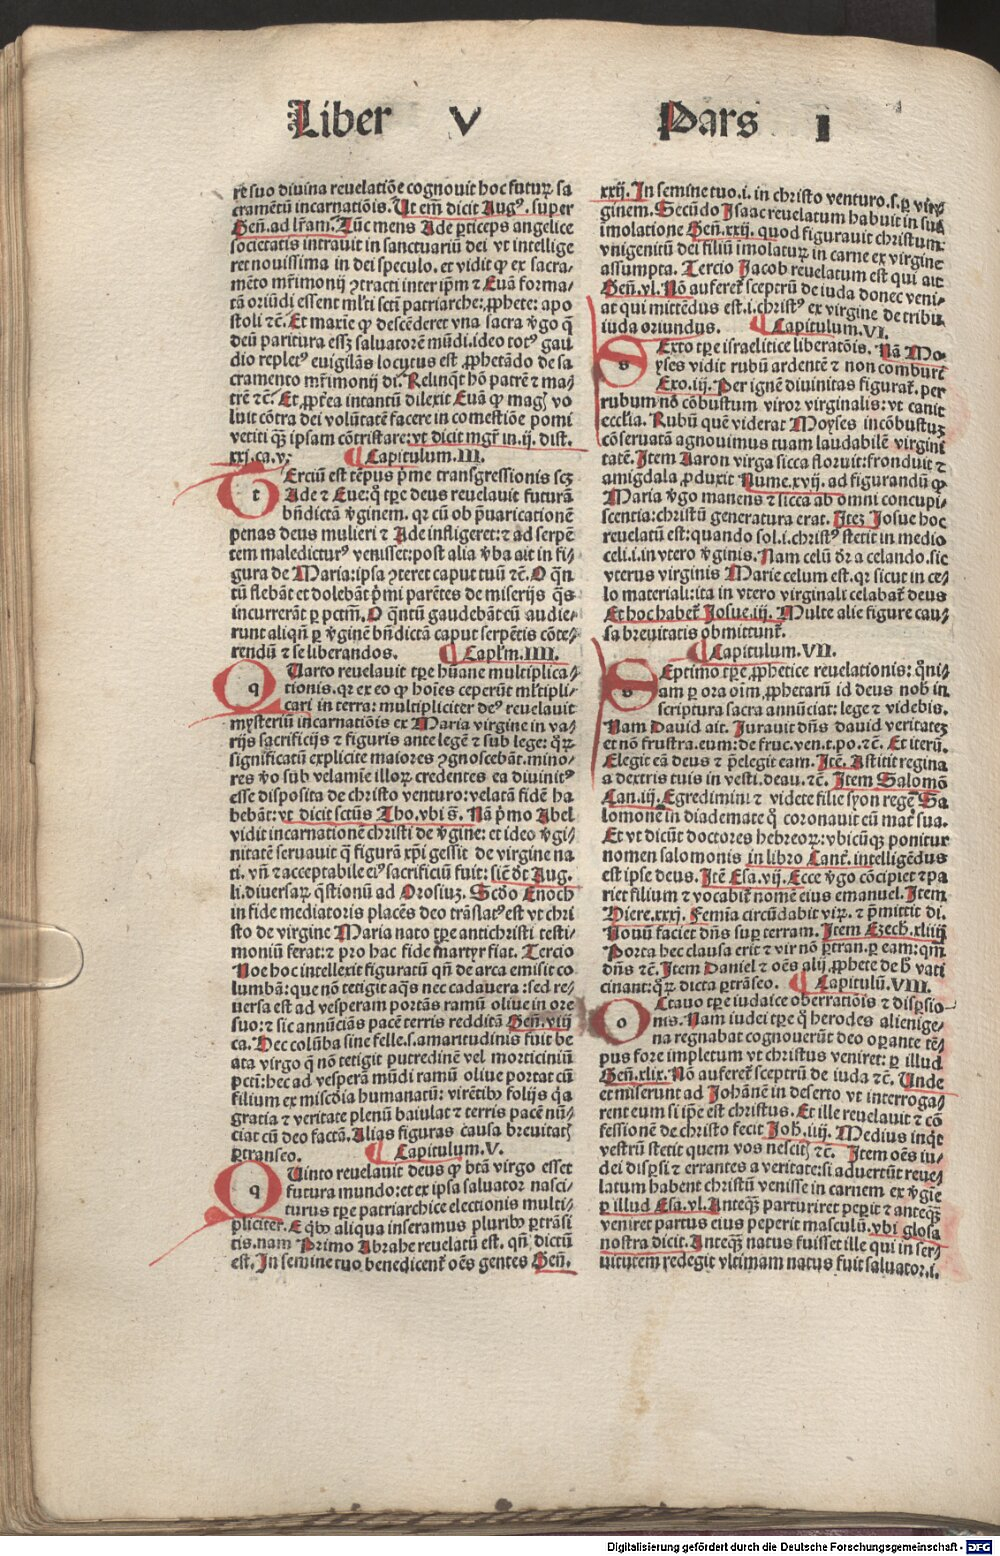 Liber V Pars I
re suo divina reuelatiōe cognouit hoc futurꝝ sa
cramētū incarnatiōis. Ut em̄ dicit Augꝰ. super
Gen̄. ad lr̄am. Tūc mens Ade p̱ticeps angelice
societatis intrauit in sanctuariū dei vt intellige
ret nouissima in dei speculo. et vidit ꝙ ex sacra-
mēto mr̄imonij ꝯtracti inter ip̄m ⁊ Euā forma-
tā oriūdi essent ml̄ti scti patriarche: ꝓphete: apo
stoli ⁊c̄. Et maxīe ꝙ descēderet vna sacra v̄go q̄
deū paritura eēt saluatorē mūdi. ideo totꝰ gau
dio repletꝰ euigilās locutus est ꝓphetādo de sa
cramento mr̄imonij di. Relinq̄t hō patrē ⁊ ma-
trē ⁊c̄. Et ꝓpt̄ea intantū dilexit Euā ꝙ magꝭ vo
luit cōtra dei volūtatē facere in comestiōe pomi
vetiti qꝫ ipsam cōtristare: vt dicit mgr̄ in. ij. dist.
xxj. ca. v. ¶ Capitulum. III.
TErciū est tēpus p̄me transgressionis scꝫ
Ade ⁊ Eue: q̊ tp̄e deus reuelauit futurā
bn̄dictā v̄ginem. qꝛ cū ob p̄uaricationē
penas deus mulieri ⁊ Ade infligeret: ⁊ ad serpē
tem maledicturꝰ venisset: post alia v̄ba ait in fi-
gura de Maria: ipsa ꝯteret caput tuū ⁊c̄. O q̄n
tū flebāt et dolebāt p̄mi parētes de miserijs q̄s
incurrerāt p̱ pctm̄. O q̄ntū gaudebāt cū audie-
runt aliqn̄ p̱ v̄ginē bn̄dictā caput serpētis cōte-
rendū ⁊ se liberandos. ¶ Capl̄m. IIII.
QUarto reuelauit tp̄e hūane multiplica-
tionis. qꝛ ex eo ꝙ hoīes ceperūt ml̄tipli-
cari in terra: multipliciter deꝰ reuelauit
mysteriū incarnatiōis ex Maria virgine in va-
rijs sacrificijs ⁊ figuris ante legē ⁊ sub lege: q̊ꝝ
significatū explicite maiores ꝯgnoscebāt. mino-
res v̊o sub velamīe illoꝝ credentes ea diuinitꝰ
esse disposita de christo venturo: velatā fidē ha
bebāt: vt dicit sctūs Tho. vbi s̄. Nā p̄mo Abel
vidit incarnationē christi de v̄gine: et ideo v̄gi-
nitatē seruauit q̄ figurā xp̄i gessit de virgine na
ti. vn̄ ⁊ acceptabile eiꝰ sacrificiū fuit: sic̄ dt̄ Aug.
li. diuersaꝝ q̄stionū ad Orosiuꝫ. Scd̄o Enoch
in fide mediatoris placēs deo trāslatꝰ est vt chri
sto de virgine Maria nato tp̄e antichristi testi-
moniū ferat: ⁊ pro hac fide martyr fiat. Tercio
Noe hoc intellexit figuratū qn̄ de arca emisit co
lumbā: que nō tetigit aq̄s nec cadauera: sed re-
uersa est ad vesperam portās ramū oliue in ore
suo: ⁊ sic annūciās pacē terris redditā Gen̄. viij
ca. Hec colūba sine felle. s. amaritudinis fuit be
ata virgo q̄ nō tetigit putredinē vel morticiniū
pctī: hec ad vesperā mūdi ramū oliue portat cū
filium ex misc̄dia humanatū: virētibꝫ folijs q̄a
gratia ⁊ veritate plenū baiulat ⁊ terris pacē nū-
ciat cū deo factā. Alias figuras causa breuitatꝭ
p̱transeo. ¶ Capitulum. V.
QUinto reuelauit deus ꝙ btā virgo esset
futura mundo: et ex ipsa saluator nasci-
turus tp̄e patriarchice electionis multi-
pliciter. E qꝫ aliqua inseramus pluribꝫ p̱trāsi
tis. nam Primo Abrahe reuelatū est. qn̄ dictū
est. In semine tuo benedicent̄ oēs gentes Gen̄.
xxij. In semine tuo. i. in christo venturo. s. p̱ vir-
ginem. Secūdo Isaac reuelatum habuit in sua
imolatione Gen̄. xxij. quod figurauit christum
vnigenitū dei filiū imolaturꝝ in carne ex virgine
assumpta. Tercio Jacob reuelatum est qui ait
Gen̄. vl. Nō auferet̄ sceptrū de iuda donec veni-
at qui mittēdus est. i. christꝰ ex virgine de tribu
iuda oriundus. ¶ Capitulum. VI.
SExto tp̄e israelitice liberatōis. Nā Mo-
yses vidit rubū ardentē ⁊ non comburi
Exo. iij. Per ignē diuinitas figurat̄. per
rubum nō cōbustum viror virginalis: vt canit
eccl̄ia. Rubū quē viderat Moyses incōbustuꝫ
cōseruatā agnouimus tuam laudabilē virgini
tatē. Item Aaron virga sicca floruit: fronduit ⁊
amigdala ꝓduxit Nume. xvij. ad figurandū ꝙ
Maria v̄go manens ⁊ sicca ab omni concupi-
scentia: christū generatura erat. Iteꝫ Josue hoc
reuelatū est: quando sol. i. christꝰ stetit in medio
celi. i. in vtero v̄ginis. Nam celū dr̄ a celando. sic
vterus virginis Marie celum est. qꝛ sicut in ce-
lo materiali: ita in vtero virginali celabat̄ deus
Et hoc habet̄ Josue. iij. Multe alie figure cau-
sa breuitatis obmittunt̄.
¶ Capitulum. VII.
SEptimo tp̄e ꝓphetice reuelationis: q̊ni-
am p̱ ora oīm ꝓphetarū id deus nob̄ in
scriptura sacra annūciat: lege ⁊ videbis.
Nam Dauid ait. Jurauit dn̄s dauid veritateꝫ
et nō frustra. eum: de fruc. ven. t. po. ⁊c̄. Et iterū.
Elegit eā deus ⁊ p̄elegit eam. Itē. Astitit regina
a dextris tuis in vesti. deau. ⁊c̄. Item Salomō
Can. iij. Egredimini ⁊ videte filie syon regē Sa
lomonē in diademate q̊ coronauit cū mat̄ sua.
Et vt dicūt doctores hebreoꝝ: vbicūqꝫ ponitur
nomen salomonis in libro Cant̄. intelligēdus
est ipse deus. Itē Esa. vij. Ecce v̄go cōcipiet ⁊ pa
riet filium ⁊ vocabit̄ nomē eius emanuel. Item
Hiere. xxxj. Femīa circūdabit virꝝ. ⁊ p̄mittit di.
Nouū faciet dn̄s suꝑ terram. Item Ezech. xliiij
Porta hec clausa erit ⁊ vir nō p̱tran. p̱ eam: qm̄
dn̄s ⁊c̄. Item Daniel ⁊ oēs alij ꝓphete de b̄ vati
cinant: q̊ꝝ dicta p̱trāseo. ¶ Capitulū. VIII.
OCtauo tp̄e iudaice oberratiōis ⁊ disp̱sio-
nis. Nam iudei tp̄e q̊ herodes alienige-
na regnabat cognouerūt deo oꝑante tē-
pus fore impletum vt christus veniret: p̱ illud
Gen̄. xlix. Nō auferet̄ sceptrū de iuda ⁊c̄. Unde
et miserunt ad Johānē in deserto vt interroga-
rent eum si ip̄e est christus. Et ille reuelauit ⁊ cō
fessionē de christo fecit Joh. iij. Medius inq̄t
vestrū stetit quem vos nescitꝭ ⁊c̄. Item oēs iu-
dei disp̱si ⁊ errantes a veritate: si aduertūt reue-
latum habent christū venisse in carnem ex v̄gīe
p̱ illud Esa. vl. Anteqꝫ parturiret peꝑit ⁊ anteqꝫ
veniret partus eius peperit masculū. vbi glosa
nostra dicit. Anteqꝫ natus fuisset ille qui in ser-
uitutem redegit vltimam natus fuit saluator. i.
Digitalisierung gefördert durch die Deutsche Forschungsgemeinschaft - DFG